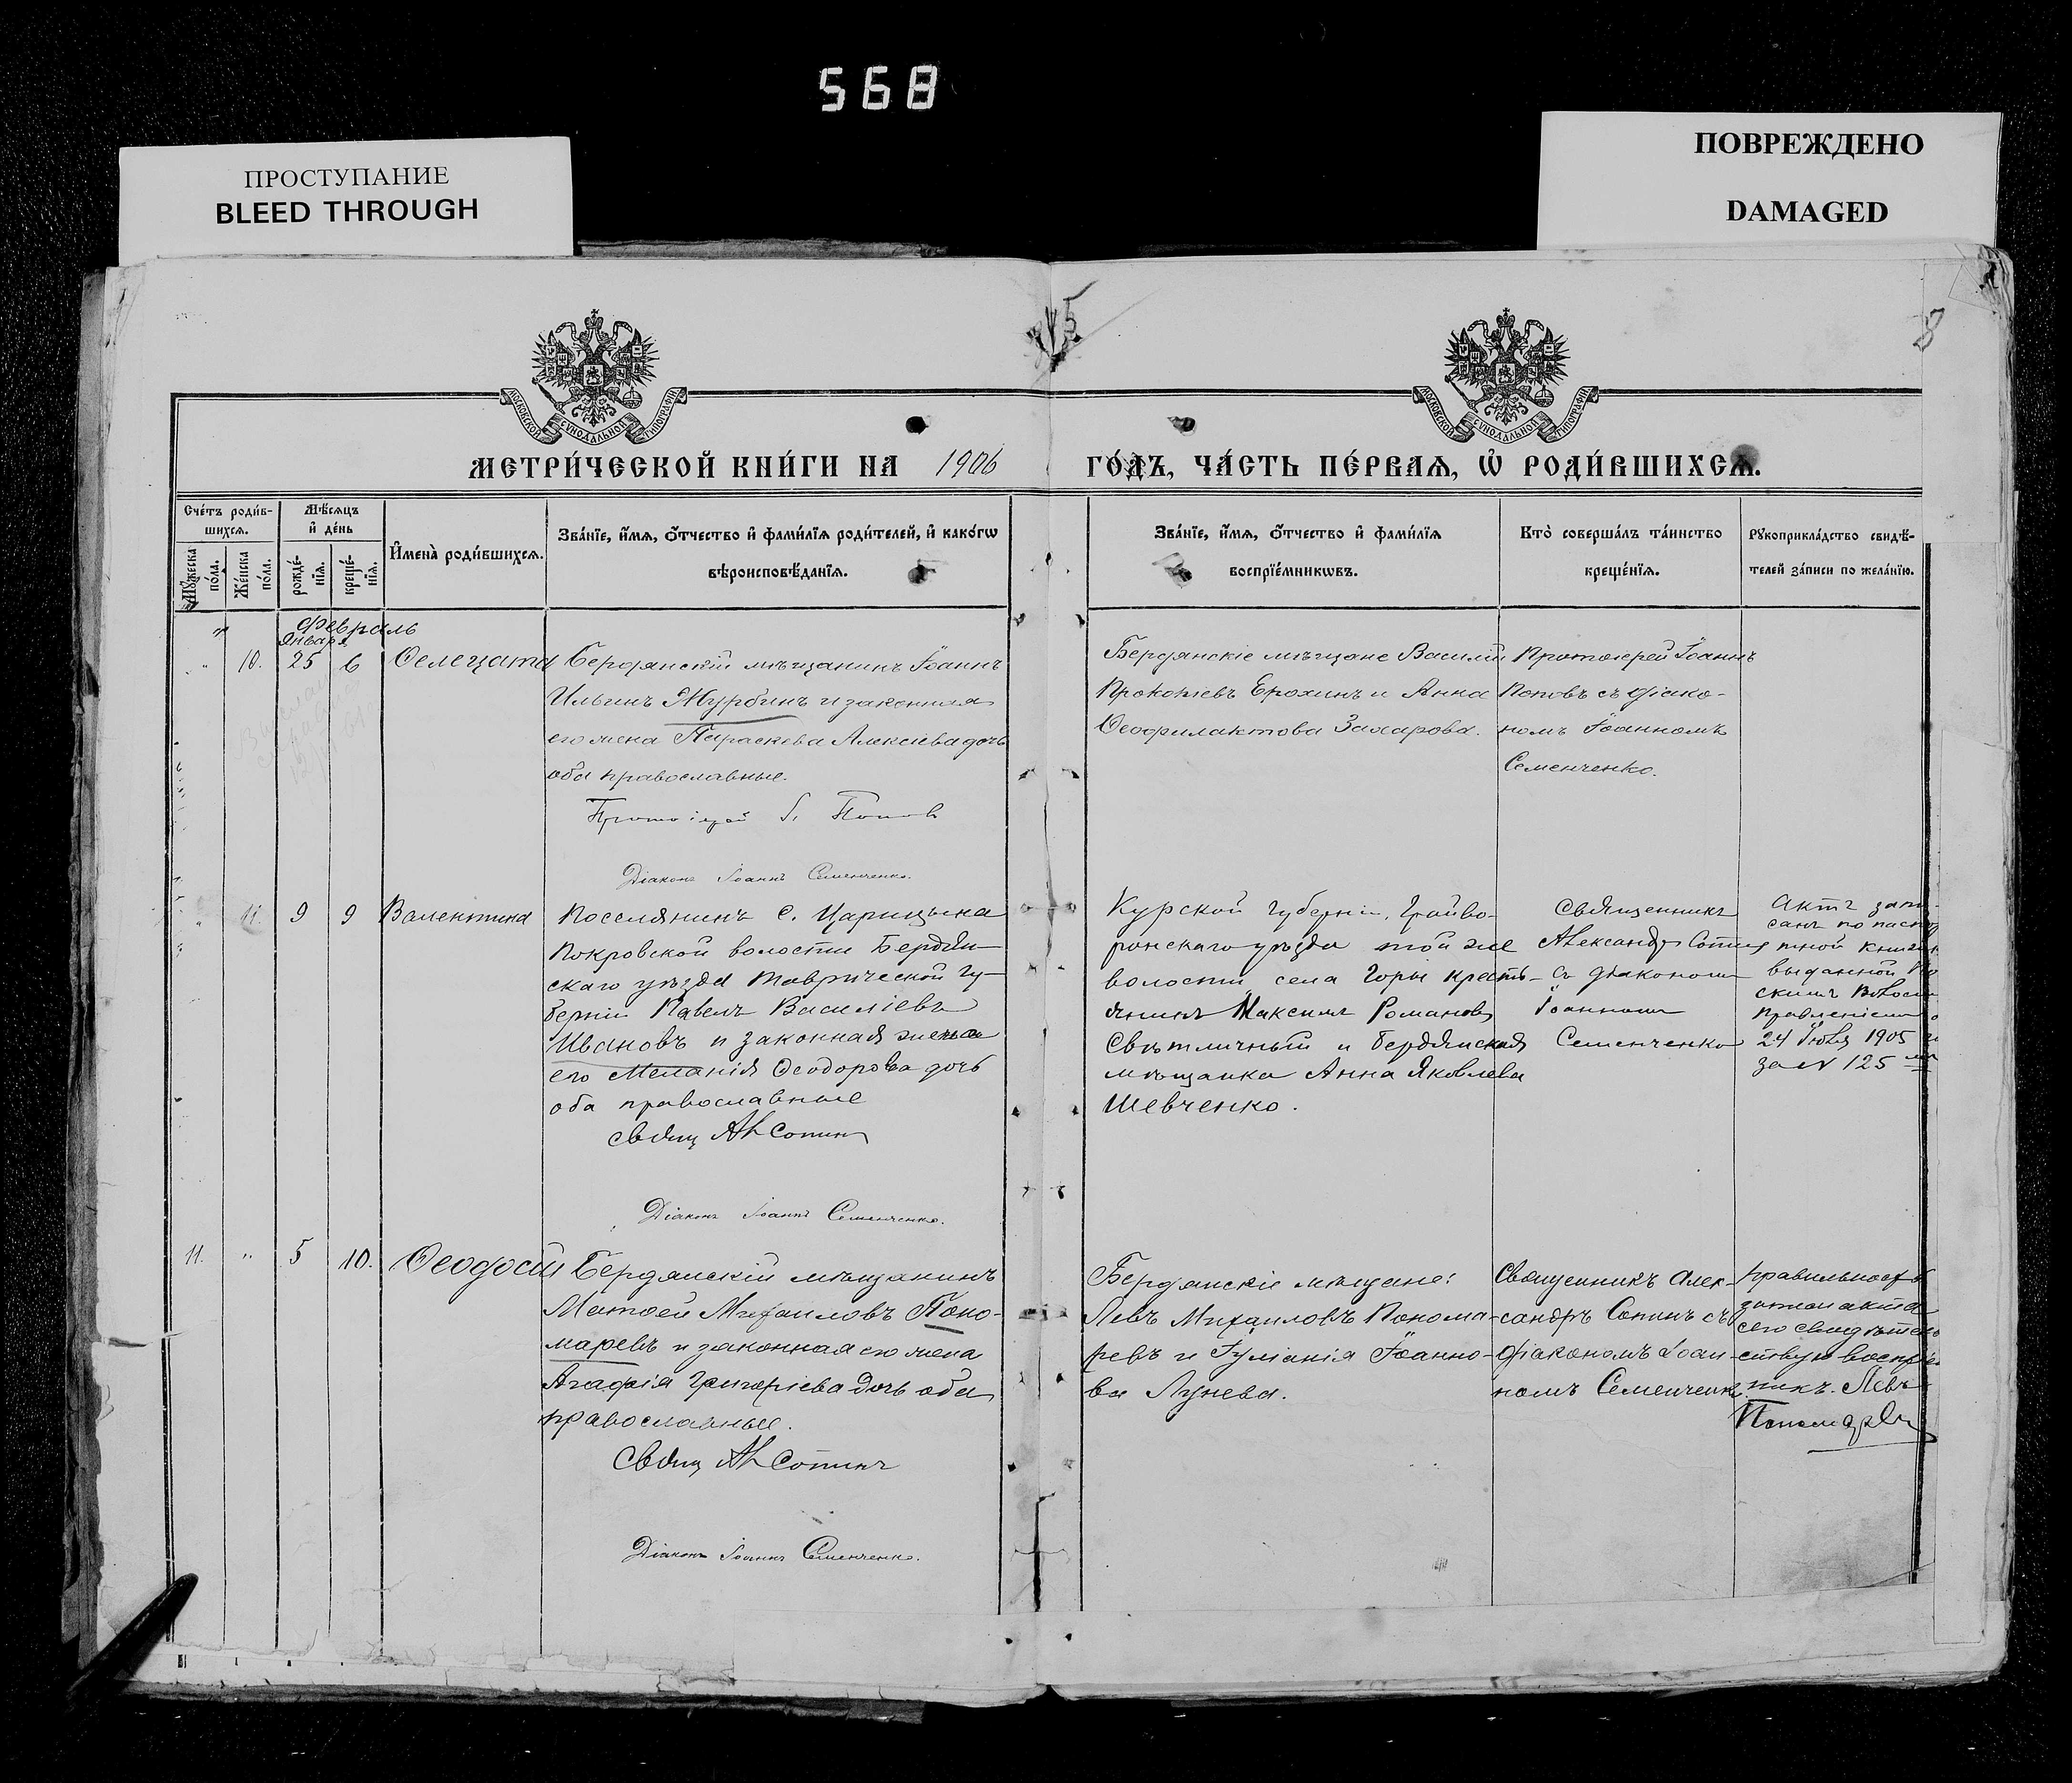 568
ПРОСТУПАНИЕ
BLEED THROUGH
ПОВРЕЖДЕНО
DAMAGED
8
МОСКОВСКОЙ СѴНОДАЛЬНОЙ ТИПОГРАФІИ
МОСКОВСКОЙ СѴНОДАЛЬНОЙ ТИПОГРАФІИ
МЕТРИ́ЧЕСКОЙ КНИ́ГИ НА 1906 ГО́ДЪ, ЧА́СТЬ ПЕ́РВАѦ, Ѡ҆ РОДИ́ВШИХСѦ.
Сче́тъ роди́в-
шихсѧ.
Мꙋ́жеска
по́ла.
Же́нска
по́ла.
Мѣ́сѧцъ
и҆ де́нь
рожде́-
нїѧ.
креще́-
нїѧ.
И҆мена̀ роди́вшихсѧ.
Зва́нїе, и҆́мѧ, ѻ҆́тчество и҆ фами́лїѧ роди́телей, и҆ како́гѡ
вѣроисповѣ́данїѧ.
Зва́нїе, и҆́мѧ, ѻ҆́тчество и҆ фами́лїѧ
воспрїе́мникѡвъ.
Кто̀ соверша́лъ та́инство
креще́нїѧ.
Рꙋкоприкла́дство свидѣ́-
телей за́писи по жела́нїю.
Февраль
Января
" 10. 25 6 Ѳелецата
Бердянскій мѣщанинъ Іоаннъ
Ильинъ Журбинъ и законная
его жена Параскева Алексіева дочь
оба православные.
Протоіерей І. Попов
Діаконъ Іоаннъ Семенченко.
Бердянскіе мѣщане Василій
Прокопіевъ Ерохинъ и Анна
Ѳеофилактова Захарова.
Протоіерей Іоаннъ
Поповъ съ діако-
номъ Іоанномъ
Семенченко.
" 11. 9 9 Валентина
Поселянинъ С. Царицына
Покровской волости Бердян-
скаго уѣзда Таврической гу-
берніи Павелъ Василіевъ
Ивановъ и законная жена
его Меланія Ѳеодорова дочь
оба православные
Свящ Ал Сопин
Діаконъ Іоаннъ Семенченко.
Курской губерніи, Грайво-
ронскаго уѣзда той же
волости села Горы кресть-
янинъ Максимъ Романовъ
Свѣтличный и бердянская
мѣщанка Анна Яковлева
Шевченко.
Священникъ
Александръ Сопин
съ діакономъ
Іоанномъ
Семенченко
Актъ запи-
санъ по паспор
тной книжк
выданной По
скимъ Волос
Правленіем
24 Іюля 1905
за № 125
11. " 5 10. Ѳеодосій
Бердянскій мѣщанинъ
Матѳей Михаиловъ Поно-
маревъ и законная его жена
Агафія Григоріева дочь оба
православные.
Свящ Ал Сопинъ
Діаконъ Іоаннъ Семенченко.
Бердянскіе мѣщане:
Левъ Михаиловъ Понома-
ревъ и Іуліанія Іоанно-
ва Лунева.
Священникъ Алек-
сандръ Сопинъ съ
діакономъ Іоан-
номъ Семенченко
Правильность
записи акта
сего свидѣтель
ствую воспріе
никъ. Левъ
Пономарев